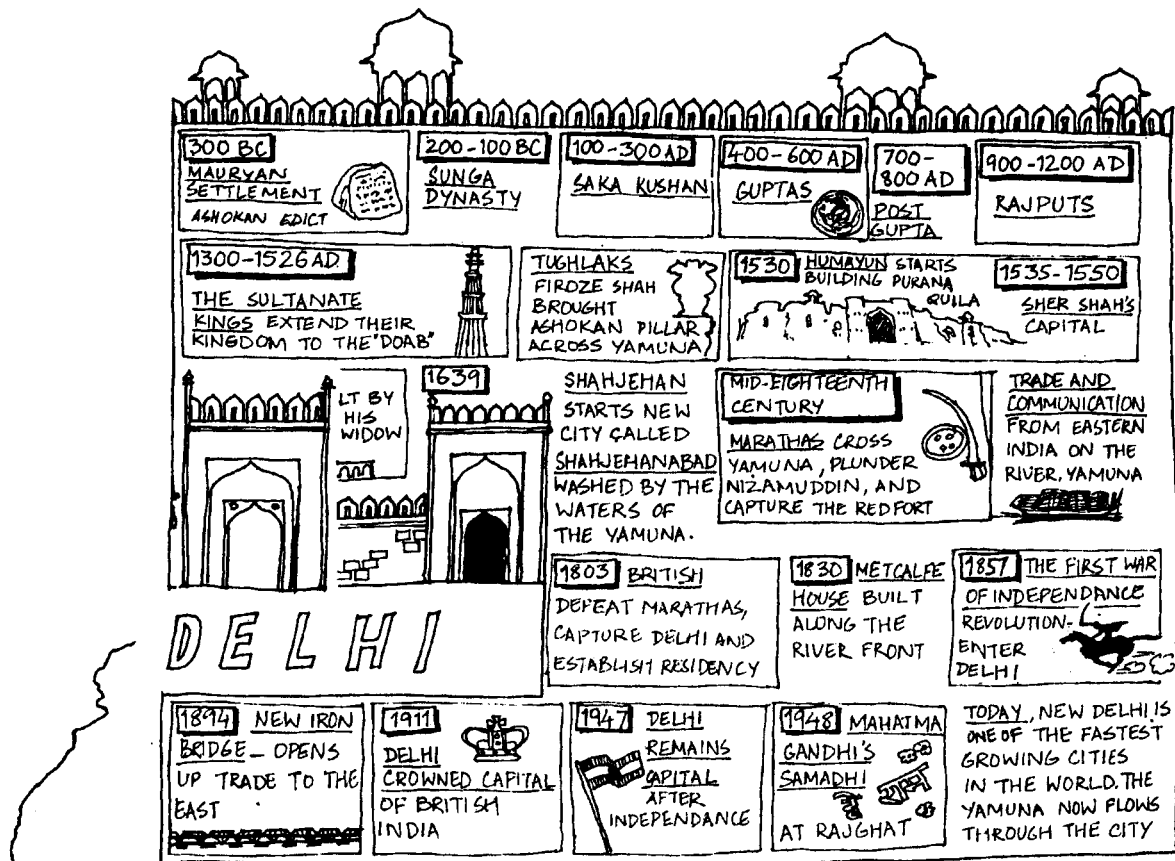 300 BC
MAURYAN
SETTLEMENT
ASHOKAN EDICT
200-100 BC
SUNGA
DYNASTY
100-300 AD
SAKA KUSHAN
400-600 AD
GUPTAS
700-
800 AD
POST
GUPTA
900-1200 AD
RAJPUTS
1300-1526 AD
THE SULTANATE
KINGS EXTEND THEIR
KINGDOM TO THE "DOAB"
TUGHLAKS
FIROZE SHAH
BROUGHT
ASHOKAN PILLAR
ACROSS YAMUNA
1530 HUMAYUN STARTS
BUILDING PURANA
QUILA
1535-1550
SHER SHAH'S
CAPITAL
LT BY
HIS
WIDOW
1639
SHAHJEHAN
STARTS NEW
CITY CALLED
SHAHJEHANABAD
WASHED BY THE
WATERS OF
THE YAMUNA.
MID-EIGHTEENTH
CENTURY
MARATHAS CROSS
YAMUNA, PLUNDER
NIZAMUDDIN, AND
CAPTURE THE RED FORT
TRADE AND
COMMUNICATION
FROM EASTERN
INDIA ON THE
RIVER, YAMUNA
1803 BRITISH
DEFEAT MARATHAS,
CAPTURE DELHI AND
ESTABLISH RESIDENCY
1830 METCALFE
HOUSE BUILT
ALONG THE
RIVER FRONT
1857 THE FIRST WAR
OF INDEPENDANCE
REVOLUTION-
ENTER
DELHI
DELHI
1894 NEW IRON
BRIDGE - OPENS
UP TRADE TO THE
EAST
1911
DELHI
CROWNED CAPITAL
OF BRITISH
INDIA
1947 DELHI
REMAINS
CAPITAL
AFTER
INDEPENDANCE
1948 MAHATMA
GANDHI'S
SAMADHI
AT RAJGHAT
TODAY, NEW DELHI IS
ONE OF THE FASTEST
GROWING CITIES
IN THE WORLD. THE
YAMUNA NOW FLOWS
THROUGH THE CITY